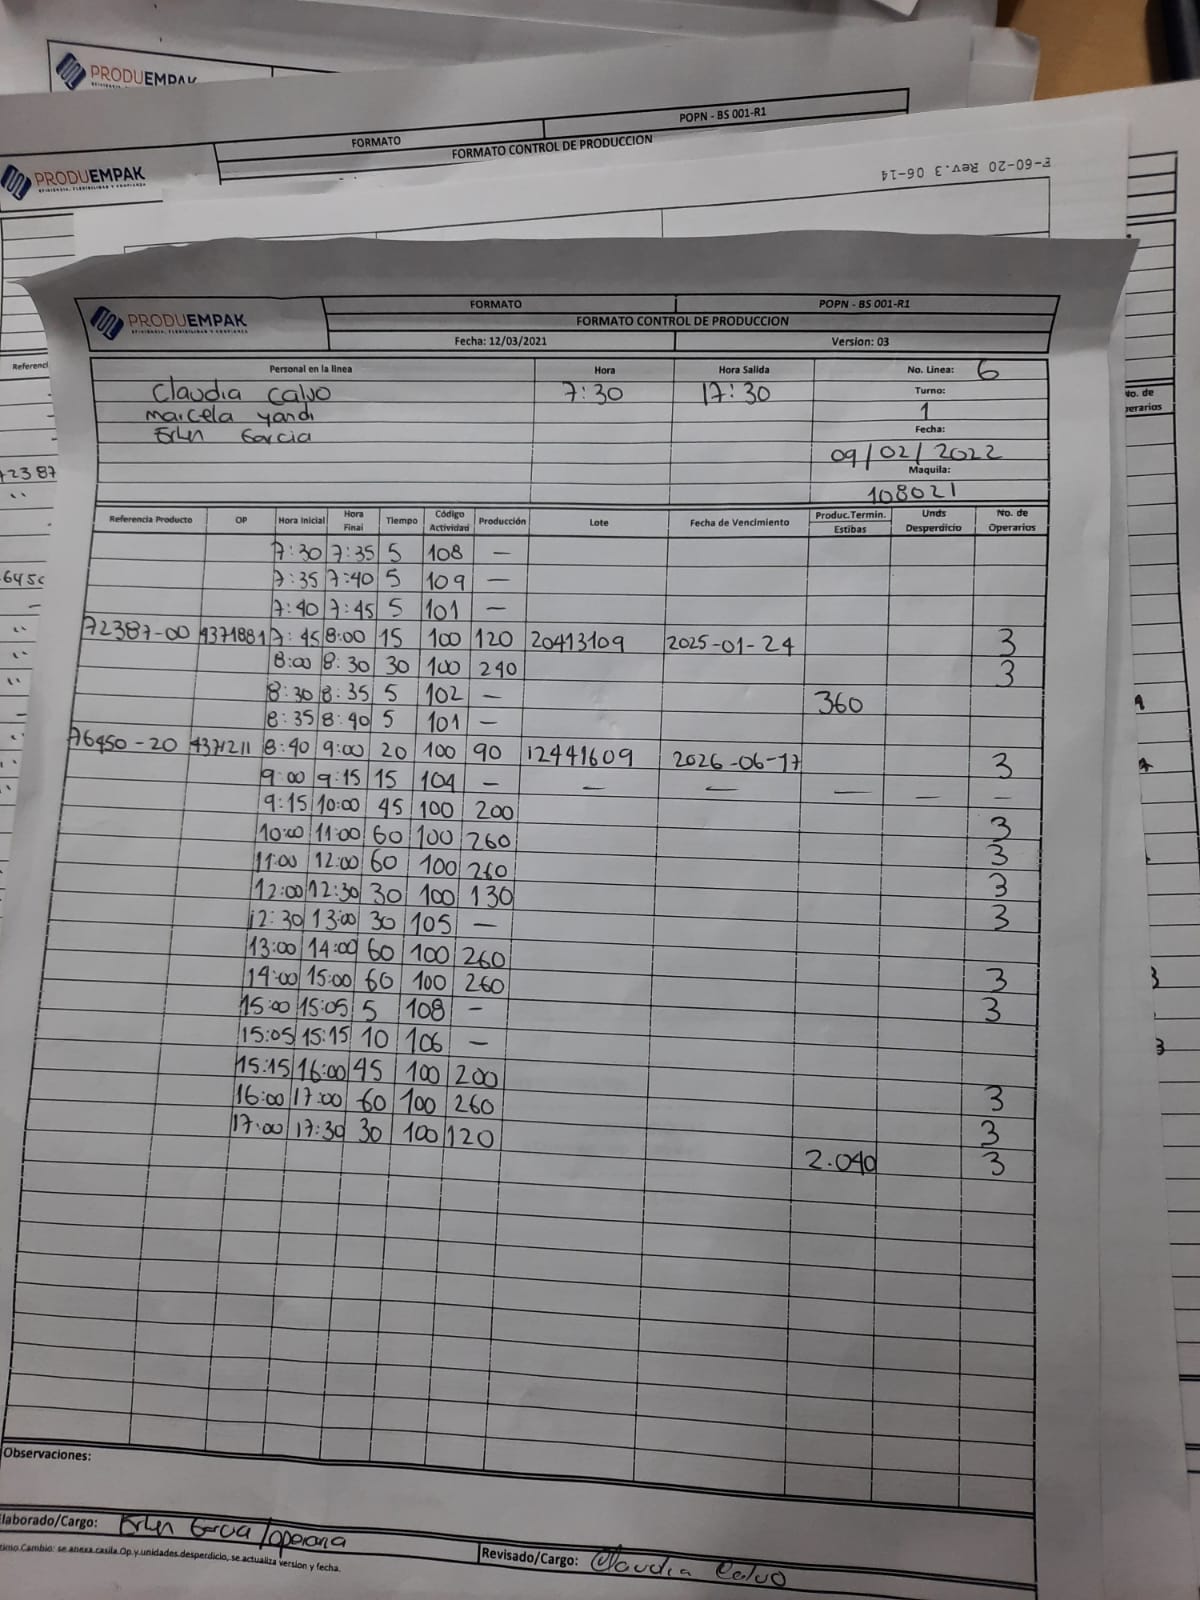 PRODUEMPAK
FORMATO
POPN - BS 001-R1
PRODUEMPAK
EFICIENCIA, FLEXIBILIDAD Y CONFIANZA
FORMATO CONTROL DE PRODUCCION
F-60-20 Rev.3 06-14
PRODUEMPAK
EFICIENCIA, FLEXIBILIDAD Y CONFIANZA
FORMATO
POPN - BS 001-R1
FORMATO CONTROL DE PRODUCCION
Fecha: 12/03/2021
Version: 03
Personal en la linea
Hora
Hora Salida
No. Linea: 6
Claudia Calvo
7:30
17:30
Turno:
Marcela yandi
1
Erlen Garcia
Fecha:
09/02/2022
Maquila:
108021
Referencia Producto OP Hora Inicial Hora Final Tiempo Código Actividad Producción Lote Fecha de Vencimiento Produc.Termin. Estibas Unds Desperdicio No. de Operarios
7:30 7:35 5 108 —
7:35 7:40 5 109 —
7:40 7:45 5 101 —
72387-00 4371881 7:45 8:00 15 100 120 20413109 2025-01-24 3
8:00 8:30 30 100 240 3
8:30 8:35 5 102 — 360
8:35 8:40 5 101 —
76450-20 4371211 8:40 9:00 20 100 90 12441609 2026-06-17 3
9:00 9:15 15 104 — — — — — —
9:15 10:00 45 100 200 3
10:00 11:00 60 100 260 3
11:00 12:00 60 100 260 3
12:00 12:30 30 100 130 3
12:30 13:00 30 105 —
13:00 14:00 60 100 260 3
14:00 15:00 60 100 260 3
15:00 15:05 5 108 —
15:05 15:15 10 106 —
15:15 16:00 45 100 200 3
16:00 17:00 60 100 260 3
17:00 17:30 30 100 120 3
2.040
Observaciones:
laborado/Cargo: Erlen Garcia/operaria
Revisado/Cargo: Claudia Calvo
timo Cambio: se anexa casila Op y unidades desperdicio, se actualiza version y fecha.